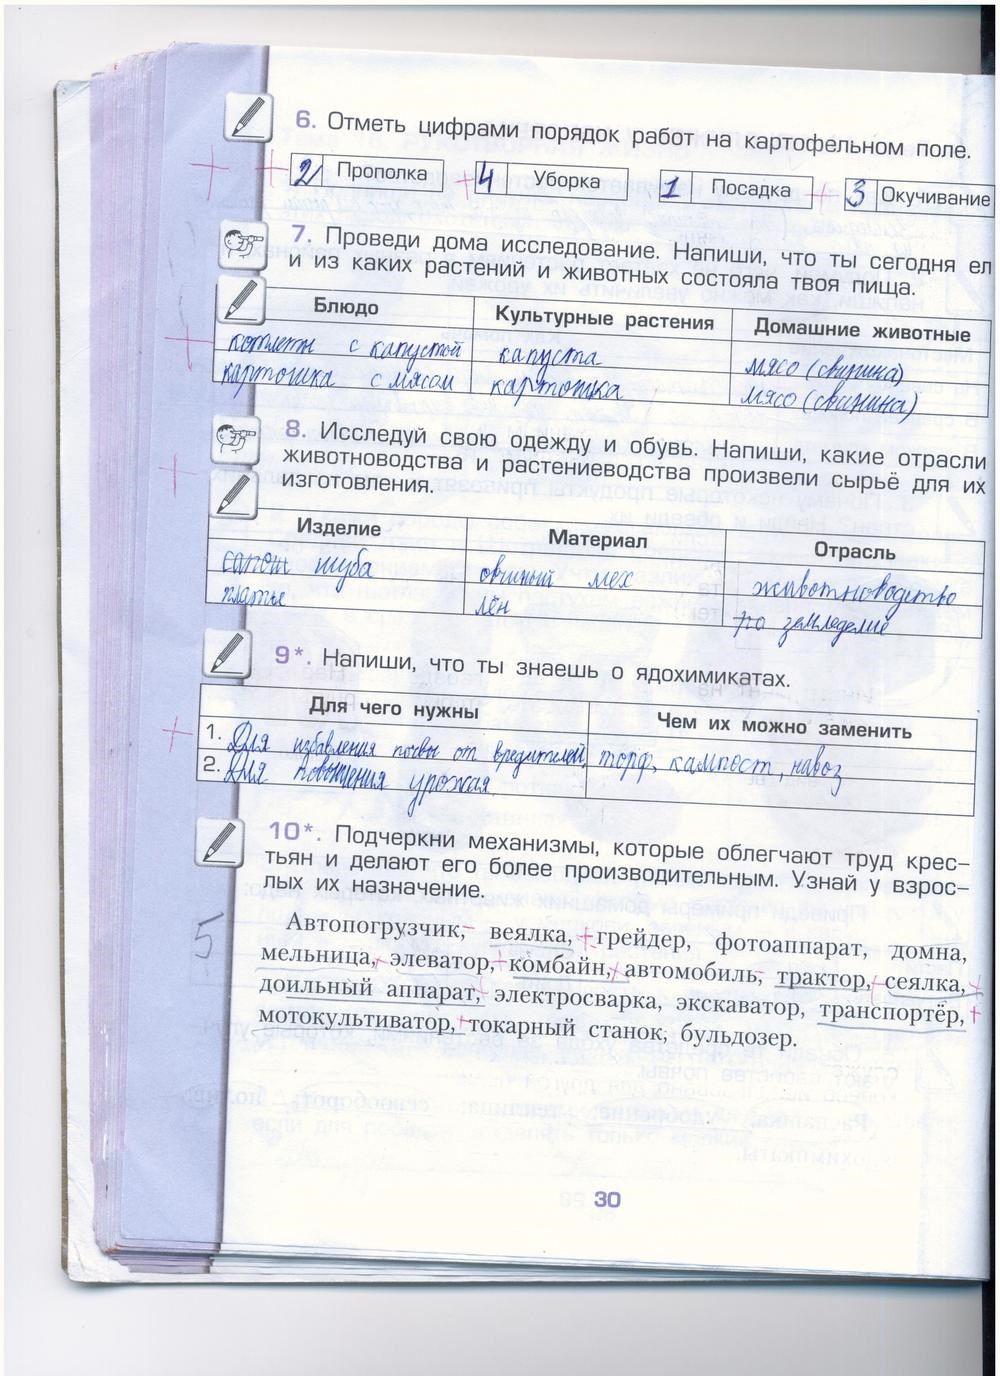 6. Отметь цифрами порядок работ на картофельном поле.
2 Прополка 4 Уборка 1 Посадка 3 Окучивание
7. Проведи дома исследование. Напиши, что ты сегодня ел
и из каких растений и животных состояла твоя пища.
Блюдо Культурные растения Домашние животные
котлеты с капустой капуста мясо (свинина)
картошка с мясом картошка мясо (свинина)
8. Исследуй свою одежду и обувь. Напиши, какие отрасли
животноводства и растениеводства произвели сырьё для их
изготовления.
Изделие Материал Отрасль
шуба мех животноводство
платье лён земледелие
9*. Напиши, что ты знаешь о ядохимикатах.
Для чего нужны Чем их можно заменить
1. Для избавления почвы от вредителей торф, кампост, навоз
2. Для повышения урожая
10*. Подчеркни механизмы, которые облегчают труд крес-
тьян и делают его более производительным. Узнай у взрос-
лых их назначение.
5
Автопогрузчик, веялка, грейдер, фотоаппарат, домна,
мельница, элеватор, комбайн, автомобиль, трактор, сеялка,
доильный аппарат, электросварка, экскаватор, транспортёр,
мотокультиватор, токарный станок, бульдозер.
30